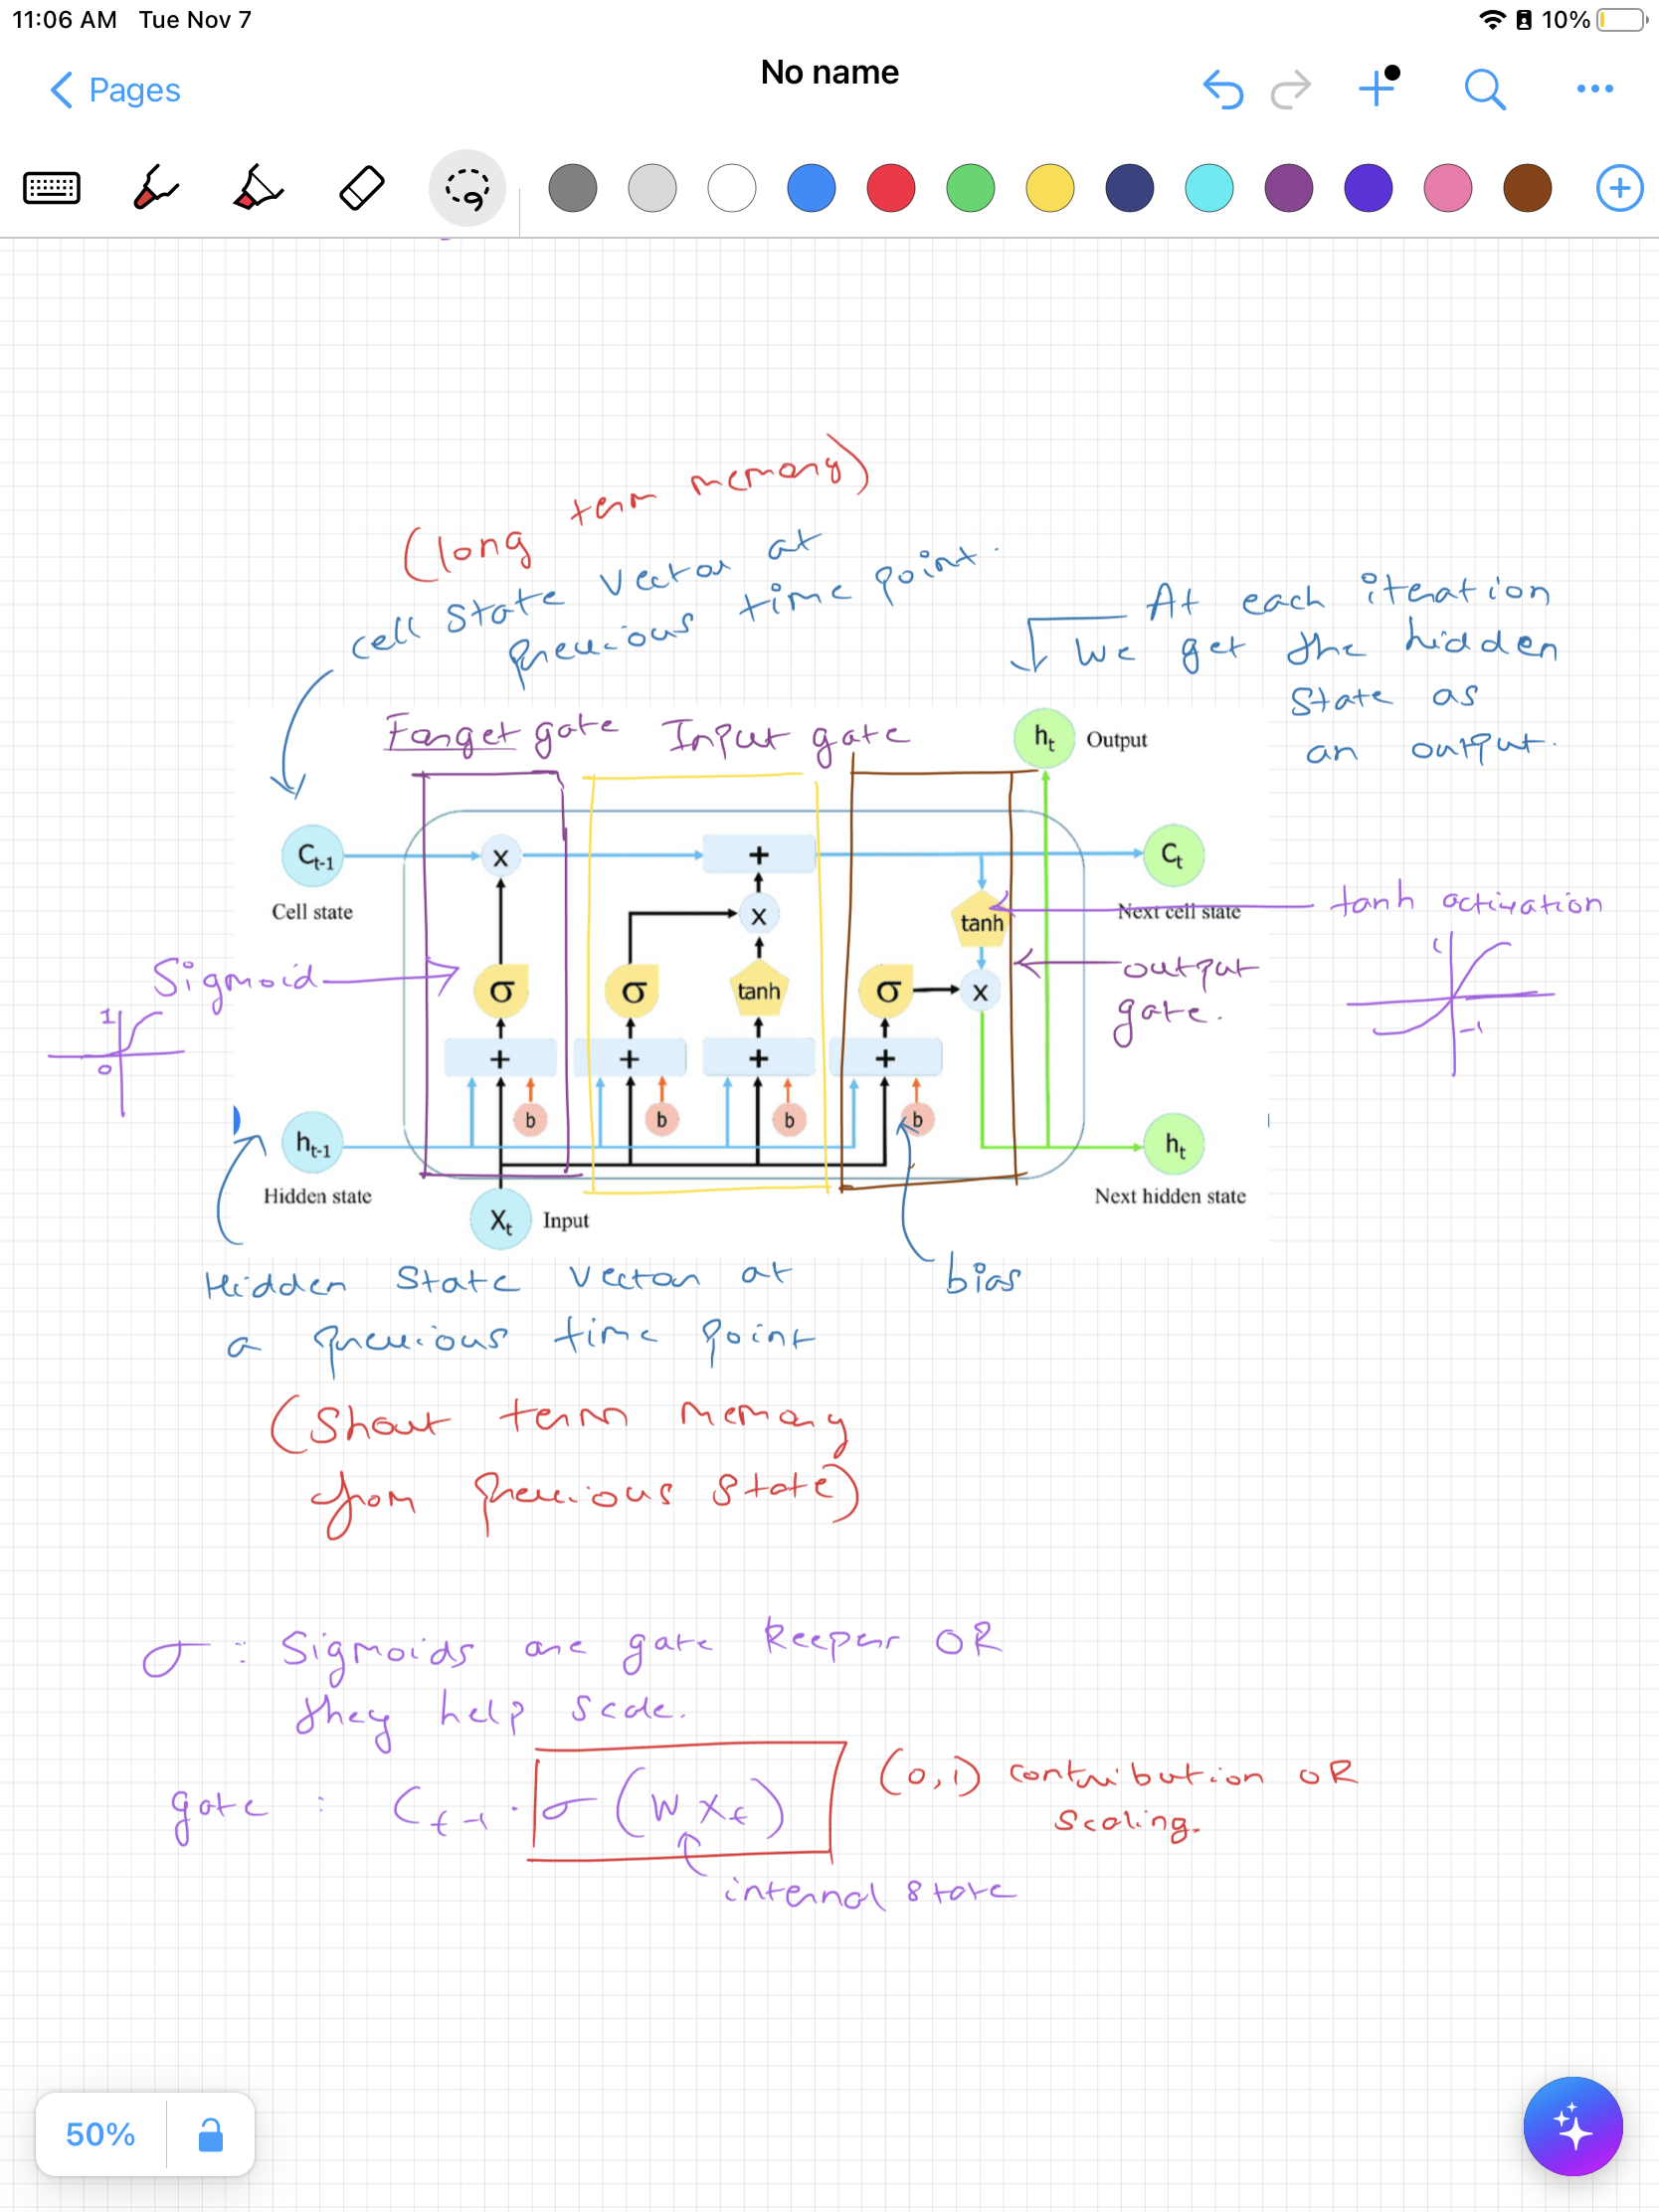 11:06 AM Tue Nov 7
10%
Pages
No name
(long term memory)
cell state vector at
previous time point.
At each iteration
we get the hidden
state as
an output.
Forget gate
Input gate
ht
Output
Ct-1
x
+
Ct
Cell state
x
tanh
Next cell state
tanh activation
1
-1
Sigmoid
1
0
σ
σ
tanh
σ
x
output
gate.
+
+
+
+
b
b
b
b
ht-1
ht
Hidden state
Next hidden state
Xt
Input
bias
Hidden state vector at
a previous time point
(Short term memory
from previous state)
σ : Sigmoids are gate keeper OR
they help scale.
gate : Ct-1 . σ (W Xt)
(0,1) contribution OR
scaling.
internal state
50%